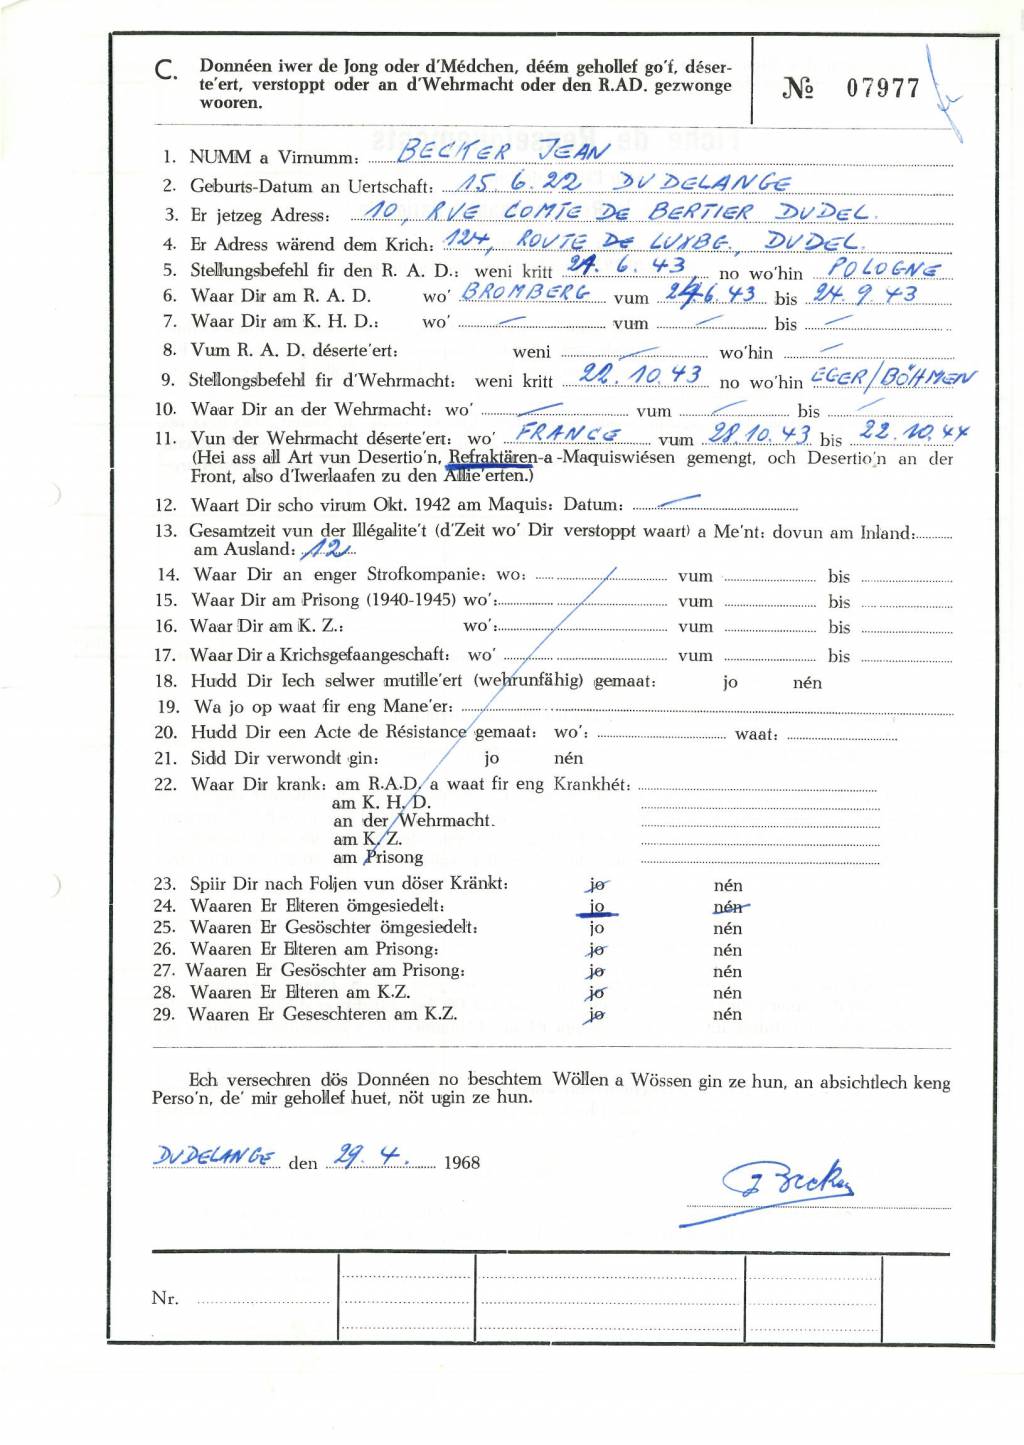 C. Donnéen iwer de Jong oder d'Médchen, déém gehollef go'f, déser-
te'ert, verstoppt oder an d'Wehrmacht oder den R.AD. gezwonge
wooren.
№ 07977
1. NUMM a Virnumm: BECKER JEAN
2. Geburts-Datum an Uertschaft: 15.6.22 DUDELANGE
3. Er jetzeg Adress: 10, RUE COMTE DE BERTIER DUDEL.
4. Er Adress wärend dem Krich: 124, ROUTE DE LUXBG., DUDEL.
5. Stellungsbefehl fir den R. A. D.: weni kritt 21.6.43 no wo'hin POLOGNE
6. Waar Dir am R. A. D. wo' BROMBERG vum 24.6.43 bis 24.9.43
7. Waar Dir am K. H. D.: wo' — vum — bis —
8. Vum R. A. D. déserte'ert: weni — wo'hin —
9. Stellongsbefehl fir d'Wehrmacht: weni kritt 22.10.43 no wo'hin EGER/BÖHMEN
10. Waar Dir an der Wehrmacht: wo' — vum — bis —
11. Vun der Wehrmacht déserte'ert: wo' FRANCE vum 28.10.43 bis 22.10.44
(Hei ass all Art vun Desertio'n, Refraktären-a-Maquiswiésen gemengt, och Desertio'n an der
Front, also d'Iwerlaafen zu den Allie'erten.)
12. Waart Dir scho virum Okt. 1942 am Maquis: Datum: —
13. Gesamtzeit vun der Illégalite't (d'Zeit wo' Dir verstoppt waart) a Me'nt: dovun am Inland:
am Ausland: 12
14. Waar Dir an enger Strofkompanie: wo: vum bis
15. Waar Dir am Prisong (1940-1945) wo': vum bis
16. Waar Dir am K. Z.: wo': vum bis
17. Waar Dir a Krichsgefaangeschaft: wo' vum bis
18. Hudd Dir Iech selwer mutille'ert (wehrunfähig) gemaat: jo nén
19. Wa jo op waat fir eng Mane'er:
20. Hudd Dir een Acte de Résistance gemaat: wo': waat:
21. Sidd Dir verwondt gin: jo nén
22. Waar Dir krank: am R.A.D. a waat fir eng Krankhét:
am K. H. D.
an der Wehrmacht.
am K. Z.
am Prisong
23. Spiir Dir nach Foljen vun döser Kränkt: jo nén
24. Waaren Er Elteren ömgesiedelt: jo nén
25. Waaren Er Gesöschter ömgesiedelt: jo nén
26. Waaren Er Elteren am Prisong: jo nén
27. Waaren Er Gesöschter am Prisong: jo nén
28. Waaren Er Elteren am K.Z. jo nén
29. Waaren Er Geseschteren am K.Z. jo nén
Ech versechren dös Donnéen no beschtem Wöllen a Wössen gin ze hun, an absichtlech keng
Perso'n, de' mir gehollef huet, nöt ugin ze hun.
DUDELANGE den 29.4. 1968
J Becker
Nr.